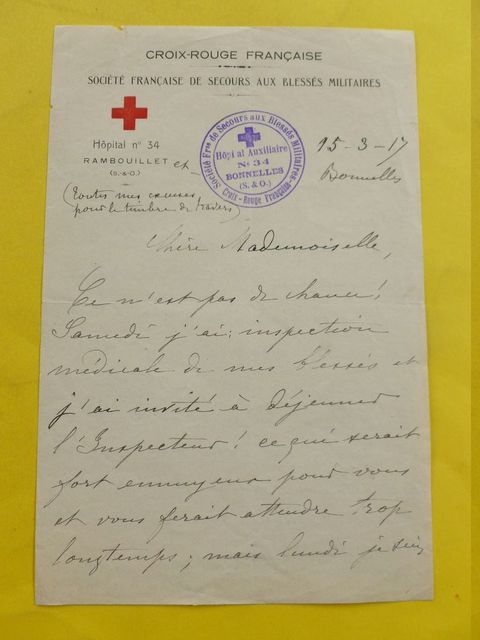 CROIX-ROUGE FRANÇAISE
SOCIÉTÉ FRANÇAISE DE SECOURS AUX BLESSÉS MILITAIRES
Hôpital nº 34
RAMBOUILLET et
(S.-&O.)
Société Fse de Secours aux Blessés Militaires
Hôpital Auxiliaire
No 34
BONNELLES
(S. & O.)
Croix-Rouge Française
15-3-17
Bonnelles
(toutes mes excuses
pour le timbre de travers)
Chère Mademoiselle,
Ce n'est pas de chance!
Samedi j'ai: inspection
médicale de mes blessés et
j'ai invité à déjeuner
l'Inspecteur! ce qui serait
fort ennuyeux pour vous
et vous ferait attendre trop
longtemps; mais lundi je suis